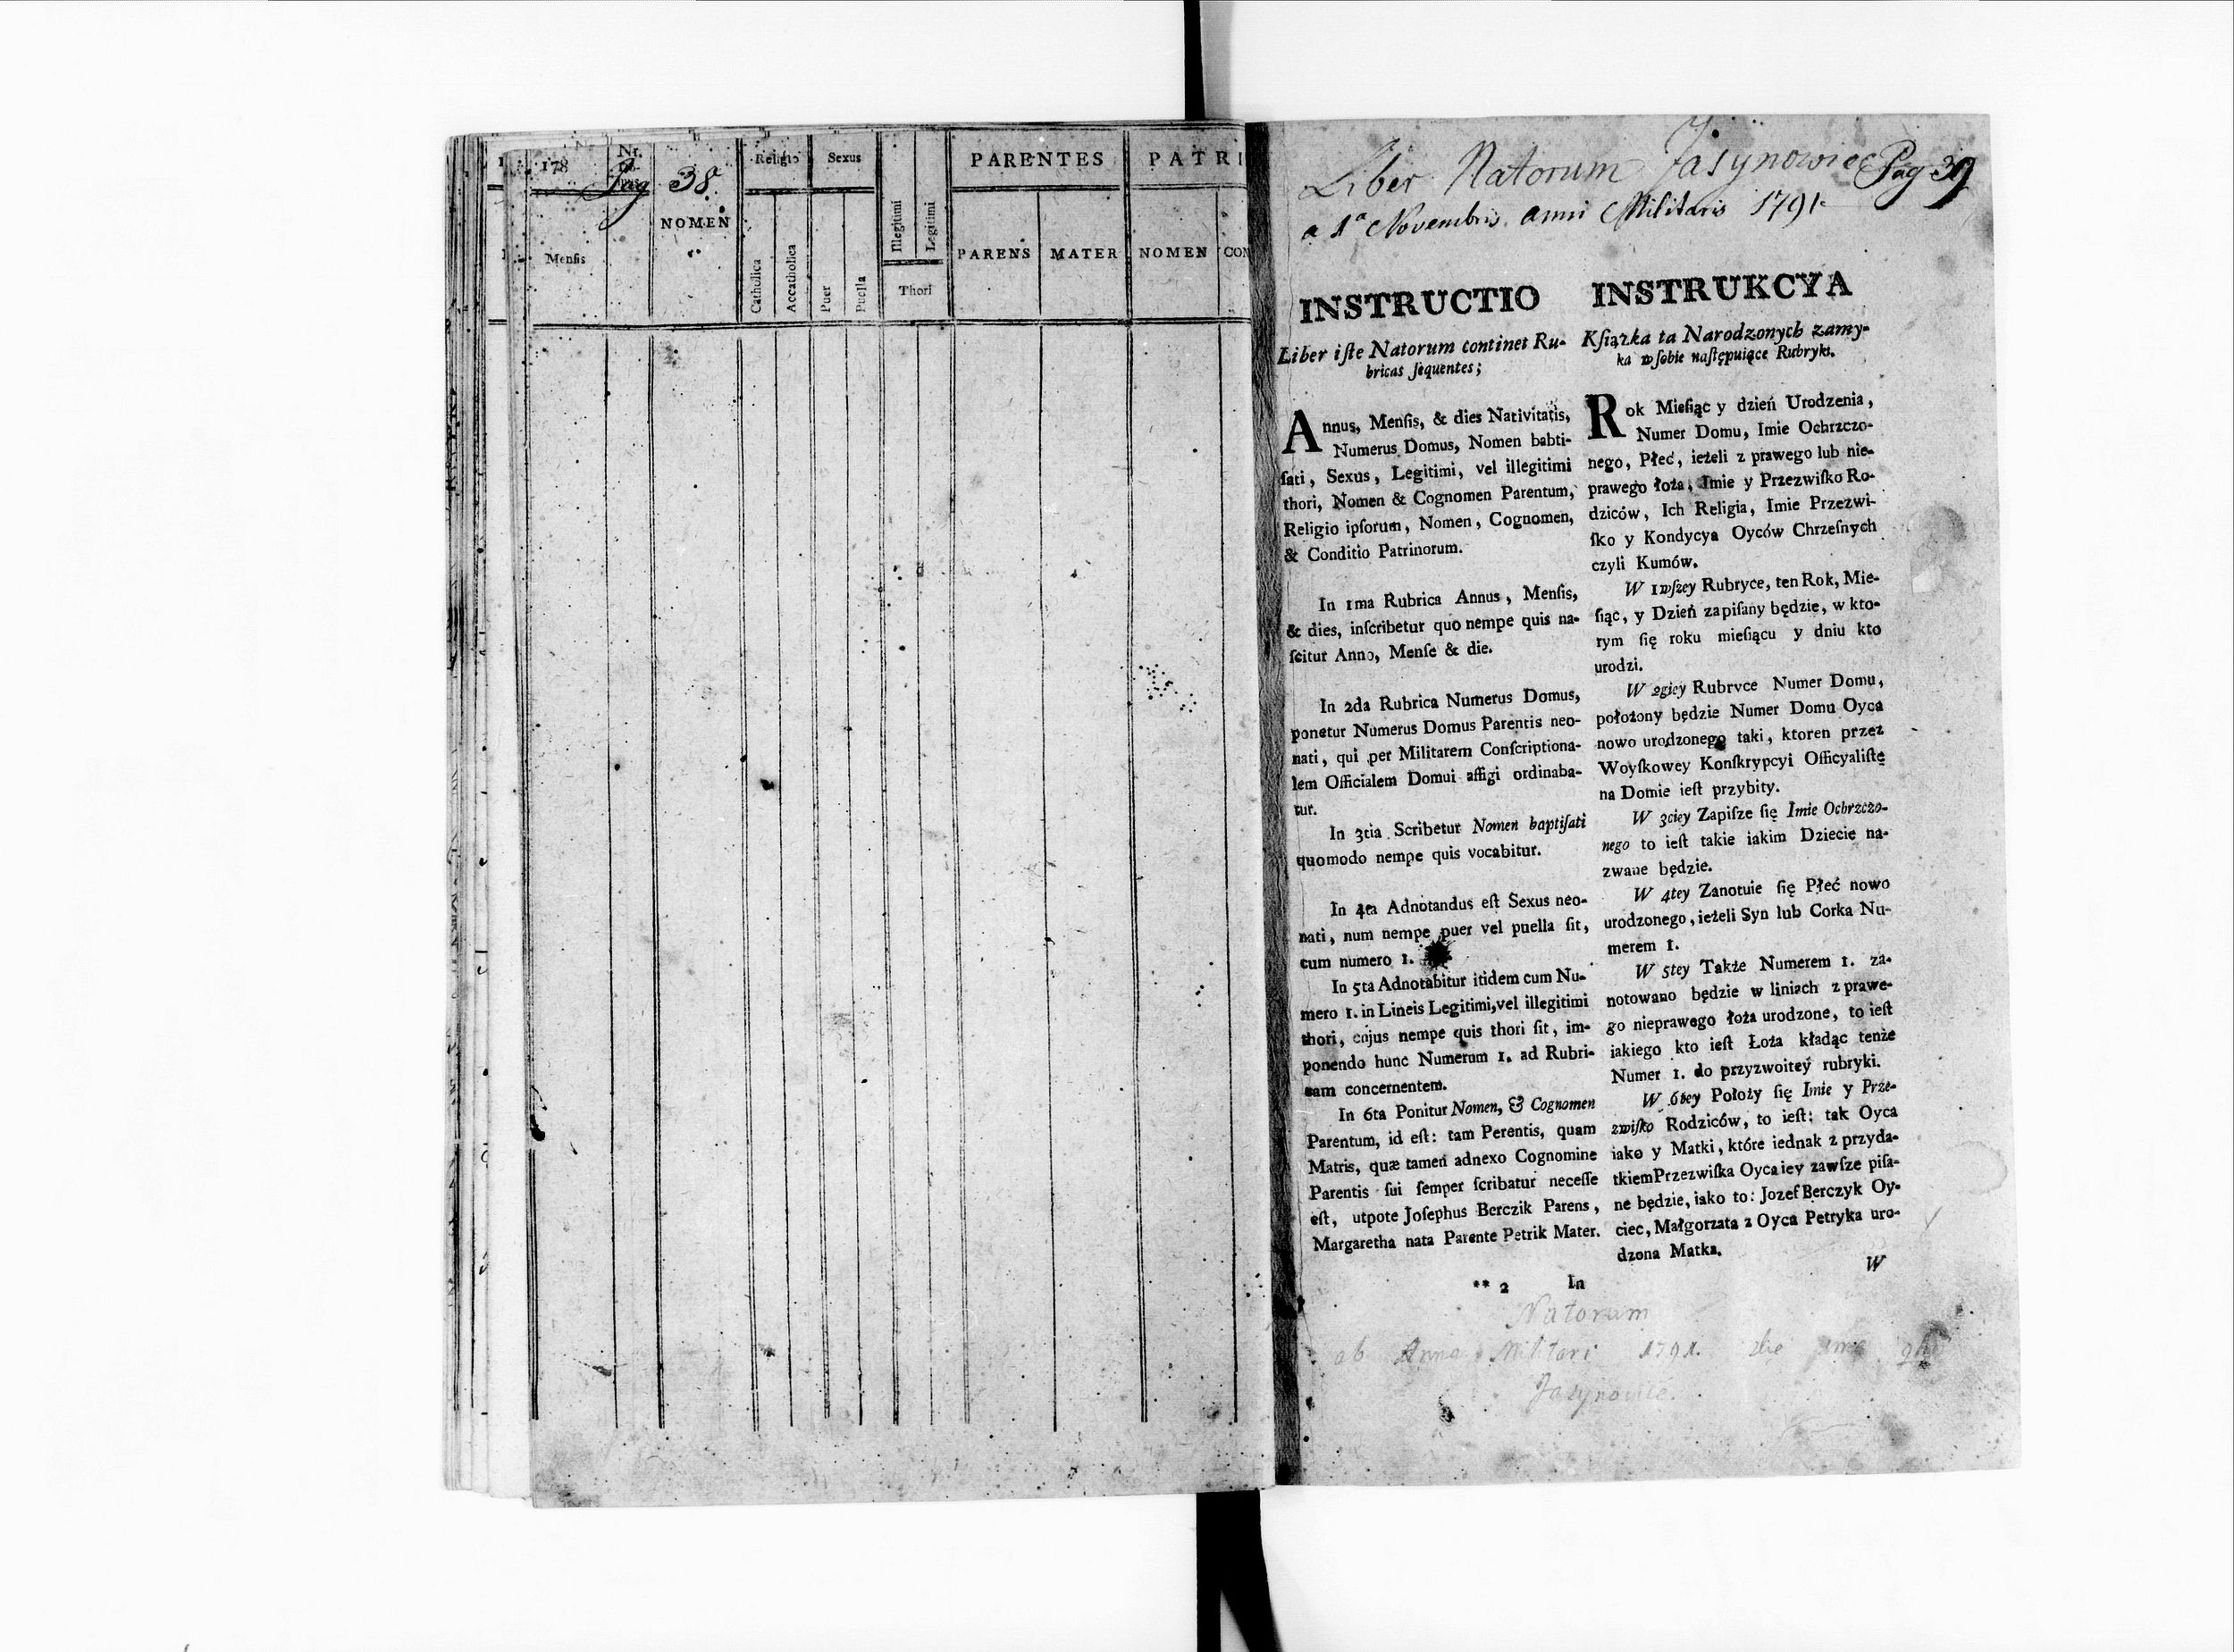 178
Nr.
Pag 38.
Mensis
NOMEN
Religio
Catholica
Accatholica
Sexus
Puer
Puella
Illegitimi
Legitimi
Thori
PARENTES
PARENS
MATER
PATRI
NOMEN
CON
Liber Natorum Jasynowiec Pag 39
a 1a Novembris anni Militaris 1791
INSTRUCTIO
Liber iſte Natorum continet Ru-
bricas ſequentes;
Annus, Menſis, & dies Nativitatis,
Numerus Domus, Nomen babti-
ſati, Sexus, Legitimi, vel illegitimi
thori, Nomen & Cognomen Parentum,
Religio ipſorum, Nomen, Cognomen,
& Conditio Patrinorum.
In 1ma Rubrica Annus, Menſis,
& dies, inſcribetur quo nempe quis na-
ſcitur Anno, Menſe & die.
In 2da Rubrica Numerus Domus,
ponetur Numerus Domus Parentis neo-
nati, qui per Militarem Conſcriptiona-
lem Officialem Domui affigi ordinaba-
tur.
In 3tia Scribetur Nomen baptiſati
quomodo nempe quis vocabitur.
In 4ta Adnotandus eſt Sexus neo-
nati, num nempe puer vel puella ſit,
cum numero 1.
In 5ta Adnotabitur itidem cum Nu-
mero 1. in Lineis Legitimi, vel illegitimi
thori, cujus nempe quis thori ſit, im-
ponendo hunc Numerum 1. ad Rubri-
cam concernentem.
In 6ta Ponitur Nomen, & Cognomen
Parentum, id eſt: tam Perentis, quam
Matris, quæ tamen adnexo Cognomine
Parentis ſui ſemper ſcribatur neceſſe
eſt, utpote Joſephus Berczik Parens,
Margaretha nata Parente Petrik Mater.
** 2 In
INSTRUKCYA
Kſiążka ta Narodzonych zamy-
ka w ſobie naſtępuiące Rubryki.
Rok Mieſiąc y dzień Urodzenia,
Numer Domu, Imie Ochrzczo-
nego, Płeć, ieżeli z prawego lub nie-
prawego łoża, Imie y Przezwiſko Ro-
dziców, Ich Religia, Imie Przezwi-
ſko y Kondycya Oyców Chrzeſnych
czyli Kumów.
W 1wſzey Rubryce, ten Rok, Mie-
ſiąc, y Dzień zapiſany będzie, w kto-
rym ſię roku mieſiącu y dniu kto
urodzi.
W 2giey Rubryce Numer Domu,
położony będzie Numer Domu Oyca
nowo urodzonego taki, ktoren przez
Woyſkowey Konſkrypcyi Officyaliſtę
na Domie ieſt przybity.
W 3ciey Zapiſze ſię Imie Ochrzczo-
nego to ieſt takie iakim Dziecie na-
zwane będzie.
W 4tey Zanotuie ſię Płeć nowo
urodzonego, ieżeli Syn lub Corka Nu-
merem 1.
W 5tey Także Numerem 1. za-
notowano będzie w liniach z prawe-
go nieprawego łoża urodzone, to ieſt
iakiego kto ieſt Łoża kładąc tenże
Numer 1. do przyzwoitey rubryki.
W 6tey Położy ſię Imie y Prze-
zwiſko Rodziców, to ieſt: tak Oyca
iako y Matki, które iednak z przyda-
tkiem Przezwiſka Oyca iey zawſze piſa-
ne będzie, iako to: Jozef Berczyk Oy-
ciec, Małgorzata z Oyca Petryka uro-
dzona Matka.
W
Natorum
ab Anno Militari 1791. die